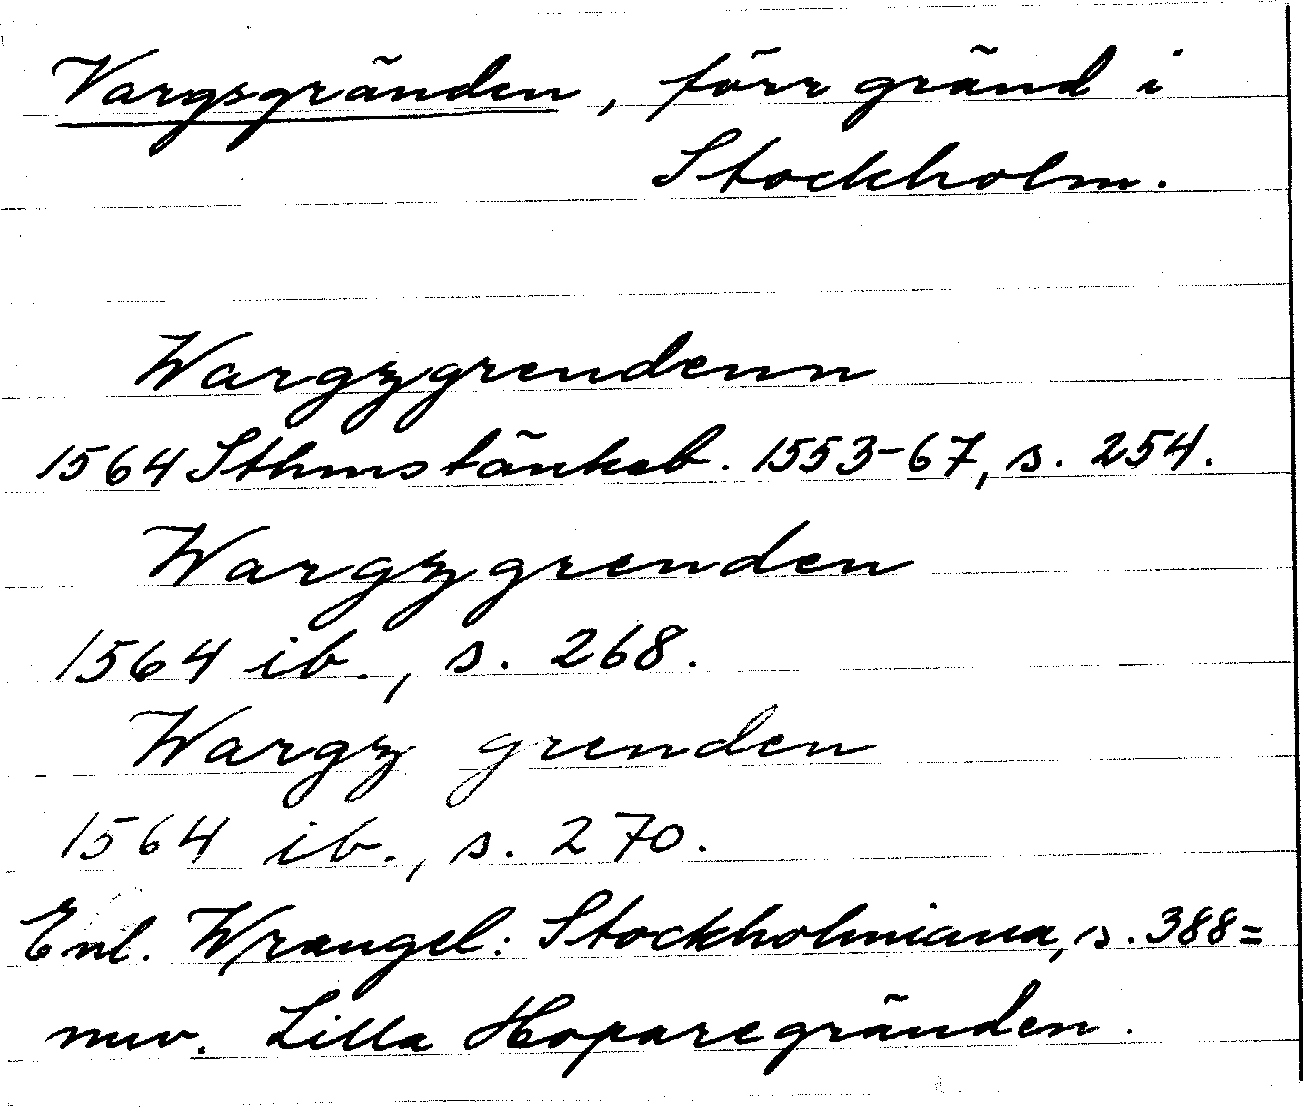 Vargsgränden, förr gränd i
Stockholm.
Wargzgrendenn
1564 Sthms tänkeb. 1553-67, s. 254.
Wargzgrenden
1564 ib., s. 268.
Wargz grenden
1564 ib., s. 270.
Enl. Wrangel: Stockholmiana, s. 388 =
nuv. Lilla Hoparegränden.